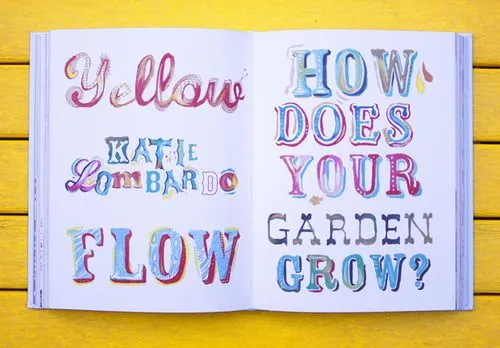 Yellow
KATIE
LOMBARDO
FLOW
HOW
DOES
YOUR
GARDEN
GROW?